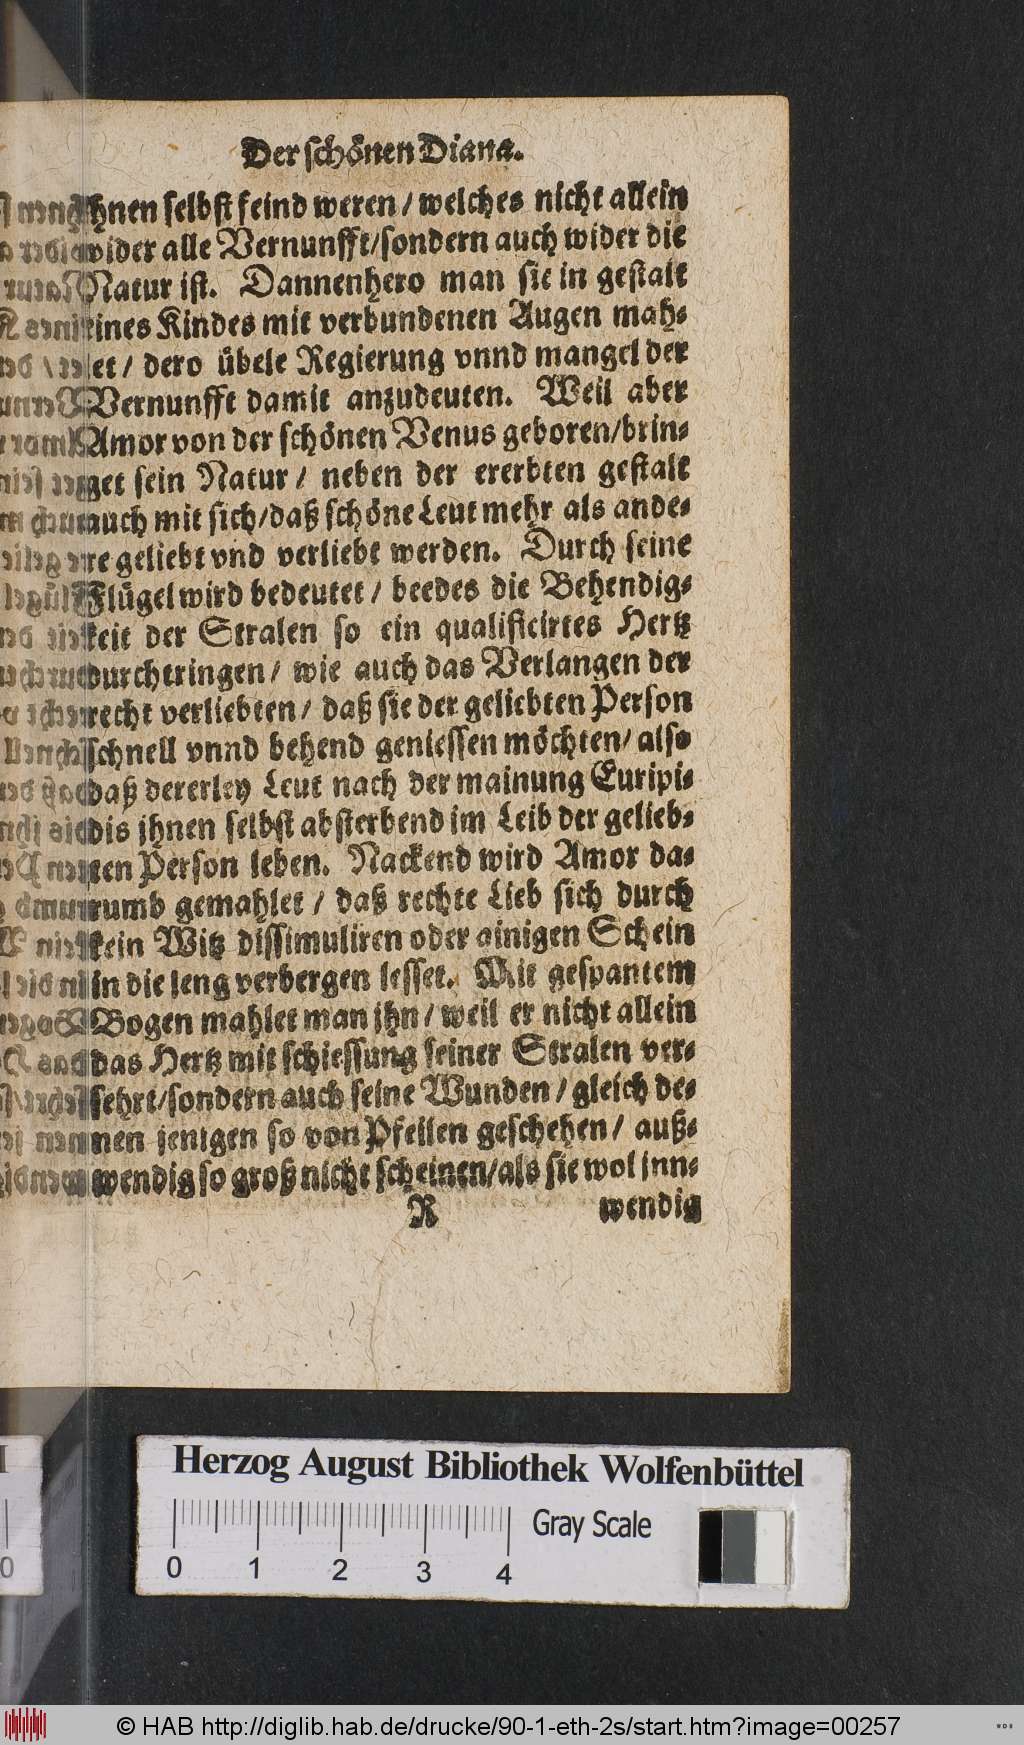 Der schönen Diana.
jhnen selbst feind weren / welches nicht allein
wider alle Vernunfft/sondern auch wider die
Natur ist. Dannenhero man sie in gestalt
eines Kindes mit verbundenen Augen mah-
let / dero übele Regierung vnnd mangel der
Vernunfft damit anzudeuten. Weil aber
Amor von der schönen Venus geboren/brin-
get sein Natur / neben der ererbten gestalt
auch mit sich/daß schöne Leut mehr als ande-
re geliebt vnd verliebt werden. Durch seine
Flügel wird bedeutet / beedes die Behendig-
keit der Stralen so ein qualificirtes Hertz
durchtringen / wie auch das Verlangen der
recht verliebten / daß sie der geliebten Person
schnell vnnd behend geniessen möchten/ also
daß dererley Leut nach der mainung Euripi-
dis jhnen selbst absterbend im Leib der gelieb-
ten Person leben. Nackend wird Amor da-
rumb gemahlet / daß rechte Lieb sich durch
kein Witz dissimuliren oder ainigen Schein
in die leng verbergen lesset. Mit gespantem
Bogen mahlet man jhn / weil er nicht allein
das Hertz mit schiessung seiner Stralen ver-
sehrt/sondern auch seine Wunden / gleich de-
nen jenigen so von Pfeilen geschehen / auß-
wendig so groß nicht scheinen/als sie wol inn-
R wendig
Herzog August Bibliothek Wolfenbüttel
Gray Scale
0 1 2 3 4
0
© HAB http://diglib.hab.de/drucke/90-1-eth-2s/start.htm?image=00257